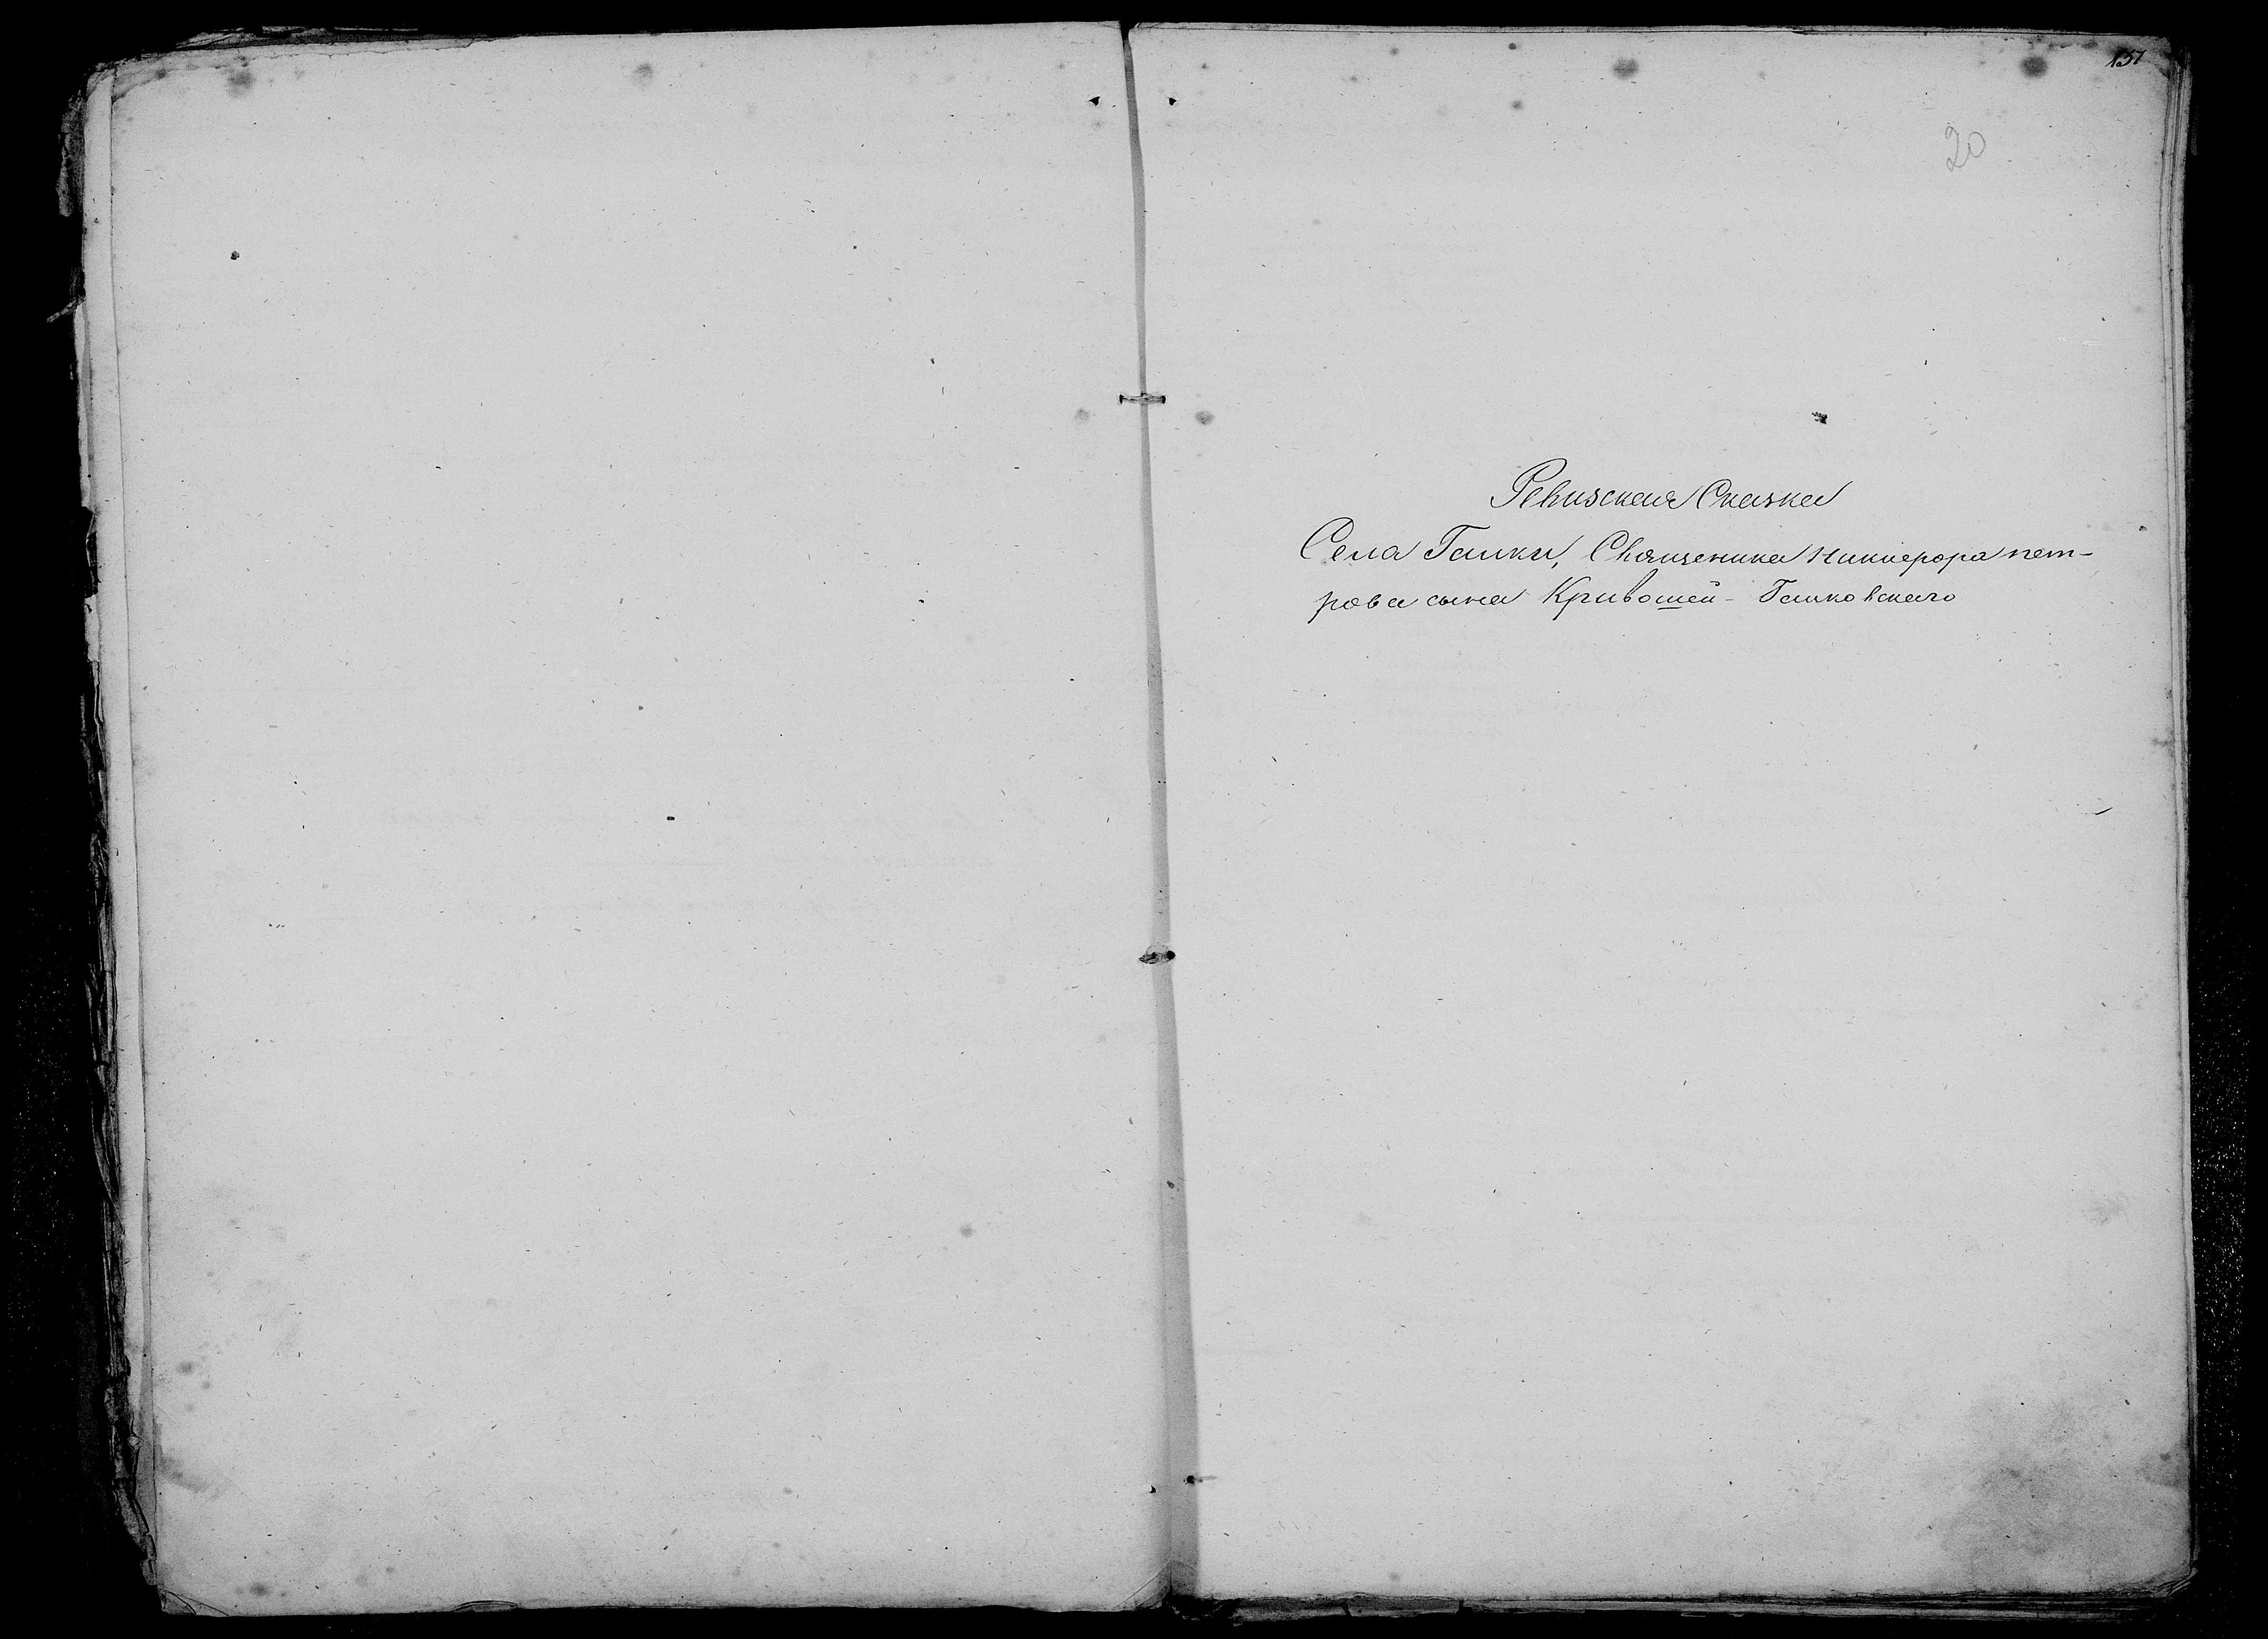 157
20
Ревизская Сказка
Села Галки, Священика Никифора пет-
рова сына Кривошеи - Галковскаго